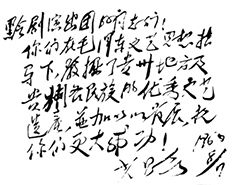 黔剧演出团的同志们！
你们在毛泽东文艺思想指
导下，发掘了贵州地方及
贵州各民族的优秀文艺
遗产，並加以以发展，祝
你们更大成功！